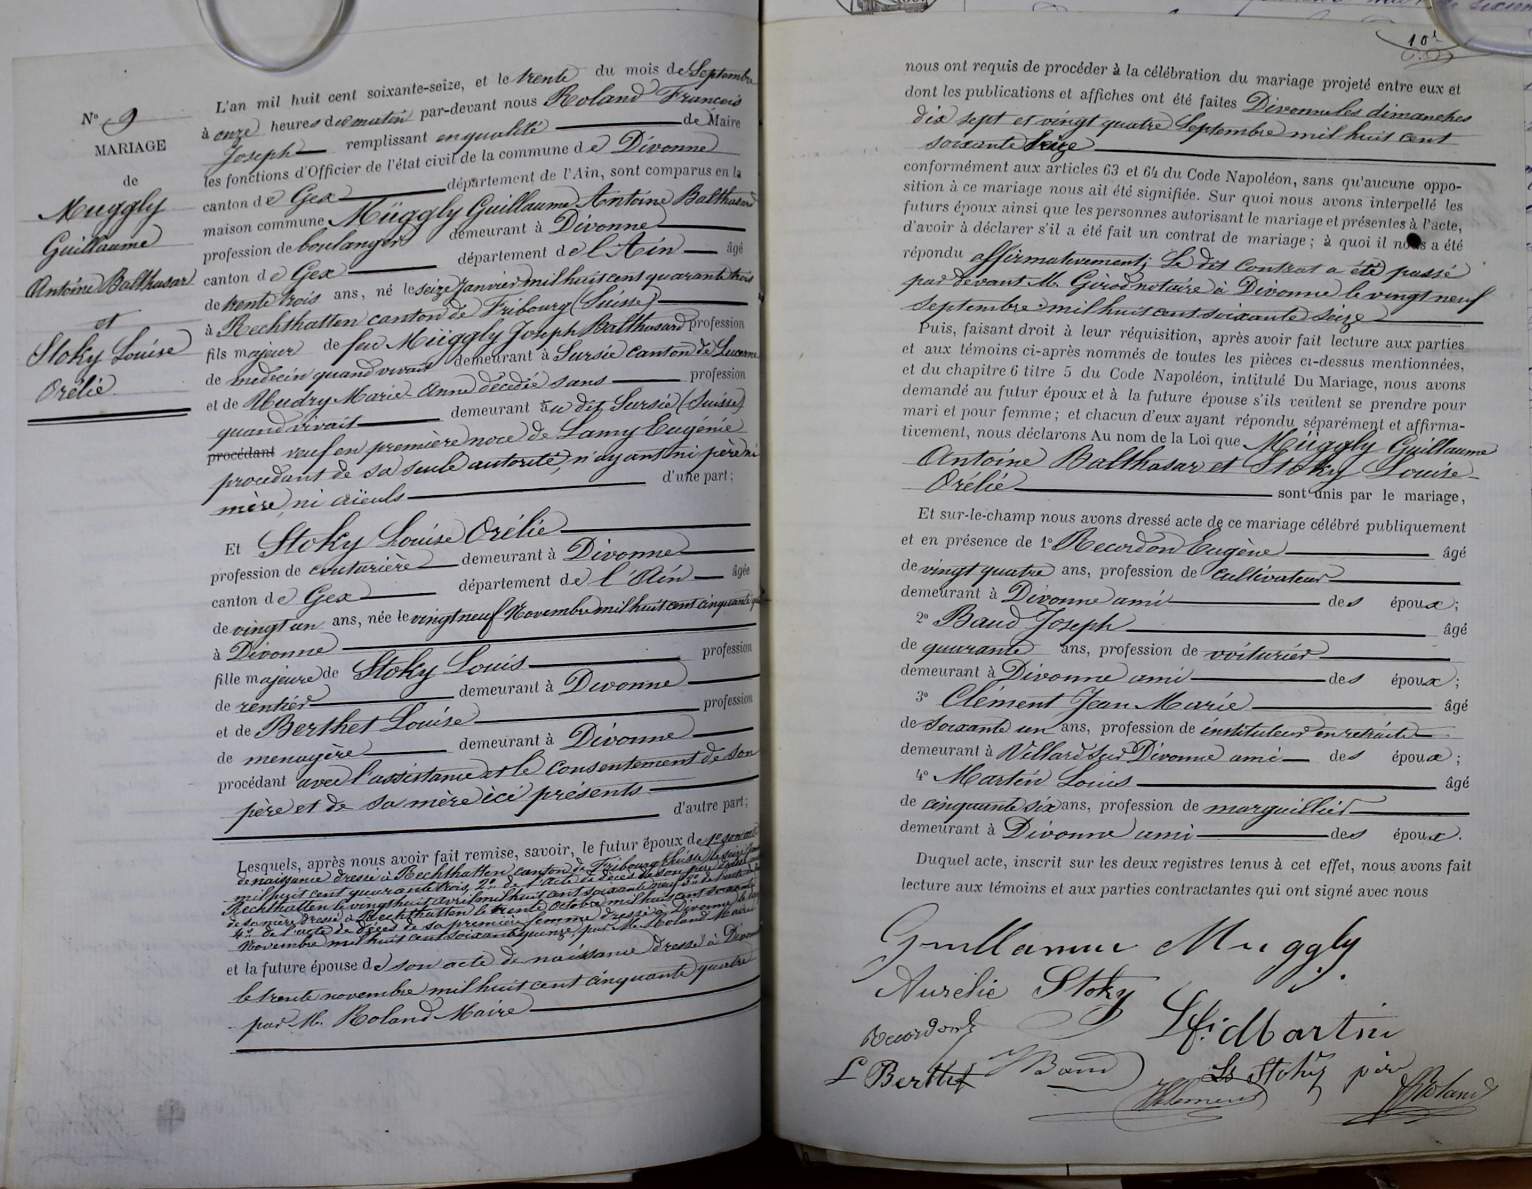 N° 9
MARIAGE
de
Müggly
Guillaume
Antoine Balthasar
et
Stoky Louise
Orélie
L'an mil huit cent soixante-seize, et le trente du mois de Septembre
à onze heures du matin par-devant nous Roland François
Joseph remplissant en qualité de Maire
les fonctions d'Officier de l'état civil de la commune de Divonne
canton de Gex département de l'Ain, sont comparus en la
maison commune Müggly Guillaume Antoine Balthasar
profession de boulanger demeurant à Divonne
canton de Gex département de l'Ain âgé
de trente trois ans, né le seize Janvier mil huit cent quarante trois
à Rechthatten canton de Fribourg (Suisse)
fils majeur de feu Müggly Joseph Balthasard profession
de médecin quand vivait demeurant à Sursée canton de Lucerne
et de Nudry Marie Anne décédée sans profession
quand vivait demeurant au dit Sursée (Suisse)
procédant veuf en première noce de Lamy Eugénie
procédant de sa seule autorité, n'ayant ni père ni
mère, ni aïeuls d'une part;
Et Stoky Louise Orélie
profession de couturière demeurant à Divonne
canton de Gex département de l'Ain âgée
de vingt un ans, née le vingt neuf Novembre mil huit cent cinquante
à Divonne
fille majeure de Stoky Louis profession
de rentier demeurant à Divonne
et de Berthet Louise profession
de menagère demeurant à Divonne
procédant avec l'assistance et le consentement de son
père et de sa mère ici présents
d'autre part;
Lesquels, après nous avoir fait remise, savoir, le futur époux de 1° son acte
de naissance dressé à Rechthatten canton de Fribourg Suisse le seize
mil huit cent quarante trois, 2° de l'acte de décès de son père
Rechthatten le vingt huit avril mil huit cent soixante neuf 3° de l'acte
de sa mère dressé à Rechthatten le trente Octobre mil huit cent soixante
4° de l'acte de décès de sa première femme dressé à Divonne le
Novembre mil huit cent soixante quinze, par M. Roland Maire
et la future épouse de son acte de naissance dressé à Divonne
le trente novembre mil huit cent cinquante quatre
par M. Roland Maire
10
nous ont requis de procéder à la célébration du mariage projeté entre eux et
dont les publications et affiches ont été faites Divonne les dimanches
dix sept et vingt quatre Septembre mil huit cent
soixante seize
conformément aux articles 63 et 64 du Code Napoléon, sans qu'aucune oppo-
sition à ce mariage nous ait été signifiée. Sur quoi nous avons interpellé les
futurs époux ainsi que les personnes autorisant le mariage et présentes à l'acte,
d'avoir à déclarer s'il a été fait un contrat de mariage ; à quoi il nous a été
répondu affirmativement; Le dit contrat a été passé
par devant M. Girod notaire à Divonne le vingt neuf
septembre mil huit cent soixante seize
Puis, faisant droit à leur réquisition, après avoir fait lecture aux parties
et aux témoins ci-après nommés de toutes les pièces ci-dessus mentionnées,
et du chapitre 6 titre 5 du Code Napoléon, intitulé Du Mariage, nous avons
demandé au futur époux et à la future épouse s'ils veulent se prendre pour
mari et pour femme ; et chacun d'eux ayant répondu séparément et affirma-
tivement, nous déclarons Au nom de la Loi que Müggly Guillaume
Antoine Balthasar et Stoky Louise
Orélie sont unis par le mariage,
Et sur-le-champ nous avons dressé acte de ce mariage célébré publiquement
et en présence de 1° Recordon Eugène âgé
de vingt quatre ans, profession de cultivateur
demeurant à Divonne ami des époux ;
2° Baud Joseph âgé
de quarante ans, profession de voiturier
demeurant à Divonne ami des époux ;
3° Clément Jean Marie âgé
de soixante un ans, profession de instituteur en retraite
demeurant à Villard sur Divonne ami des époux ;
4° Martin Louis âgé
de cinquante six ans, profession de marguillier
demeurant à Divonne ami des époux.
Duquel acte, inscrit sur les deux registres tenus à cet effet, nous avons fait
lecture aux témoins et aux parties contractantes qui ont signé avec nous
Guillaume Muggly
Aurelie Stoky
Recordon E
Martin
L Berthet
J Baud
Ls Stoky père
Clement
Roland